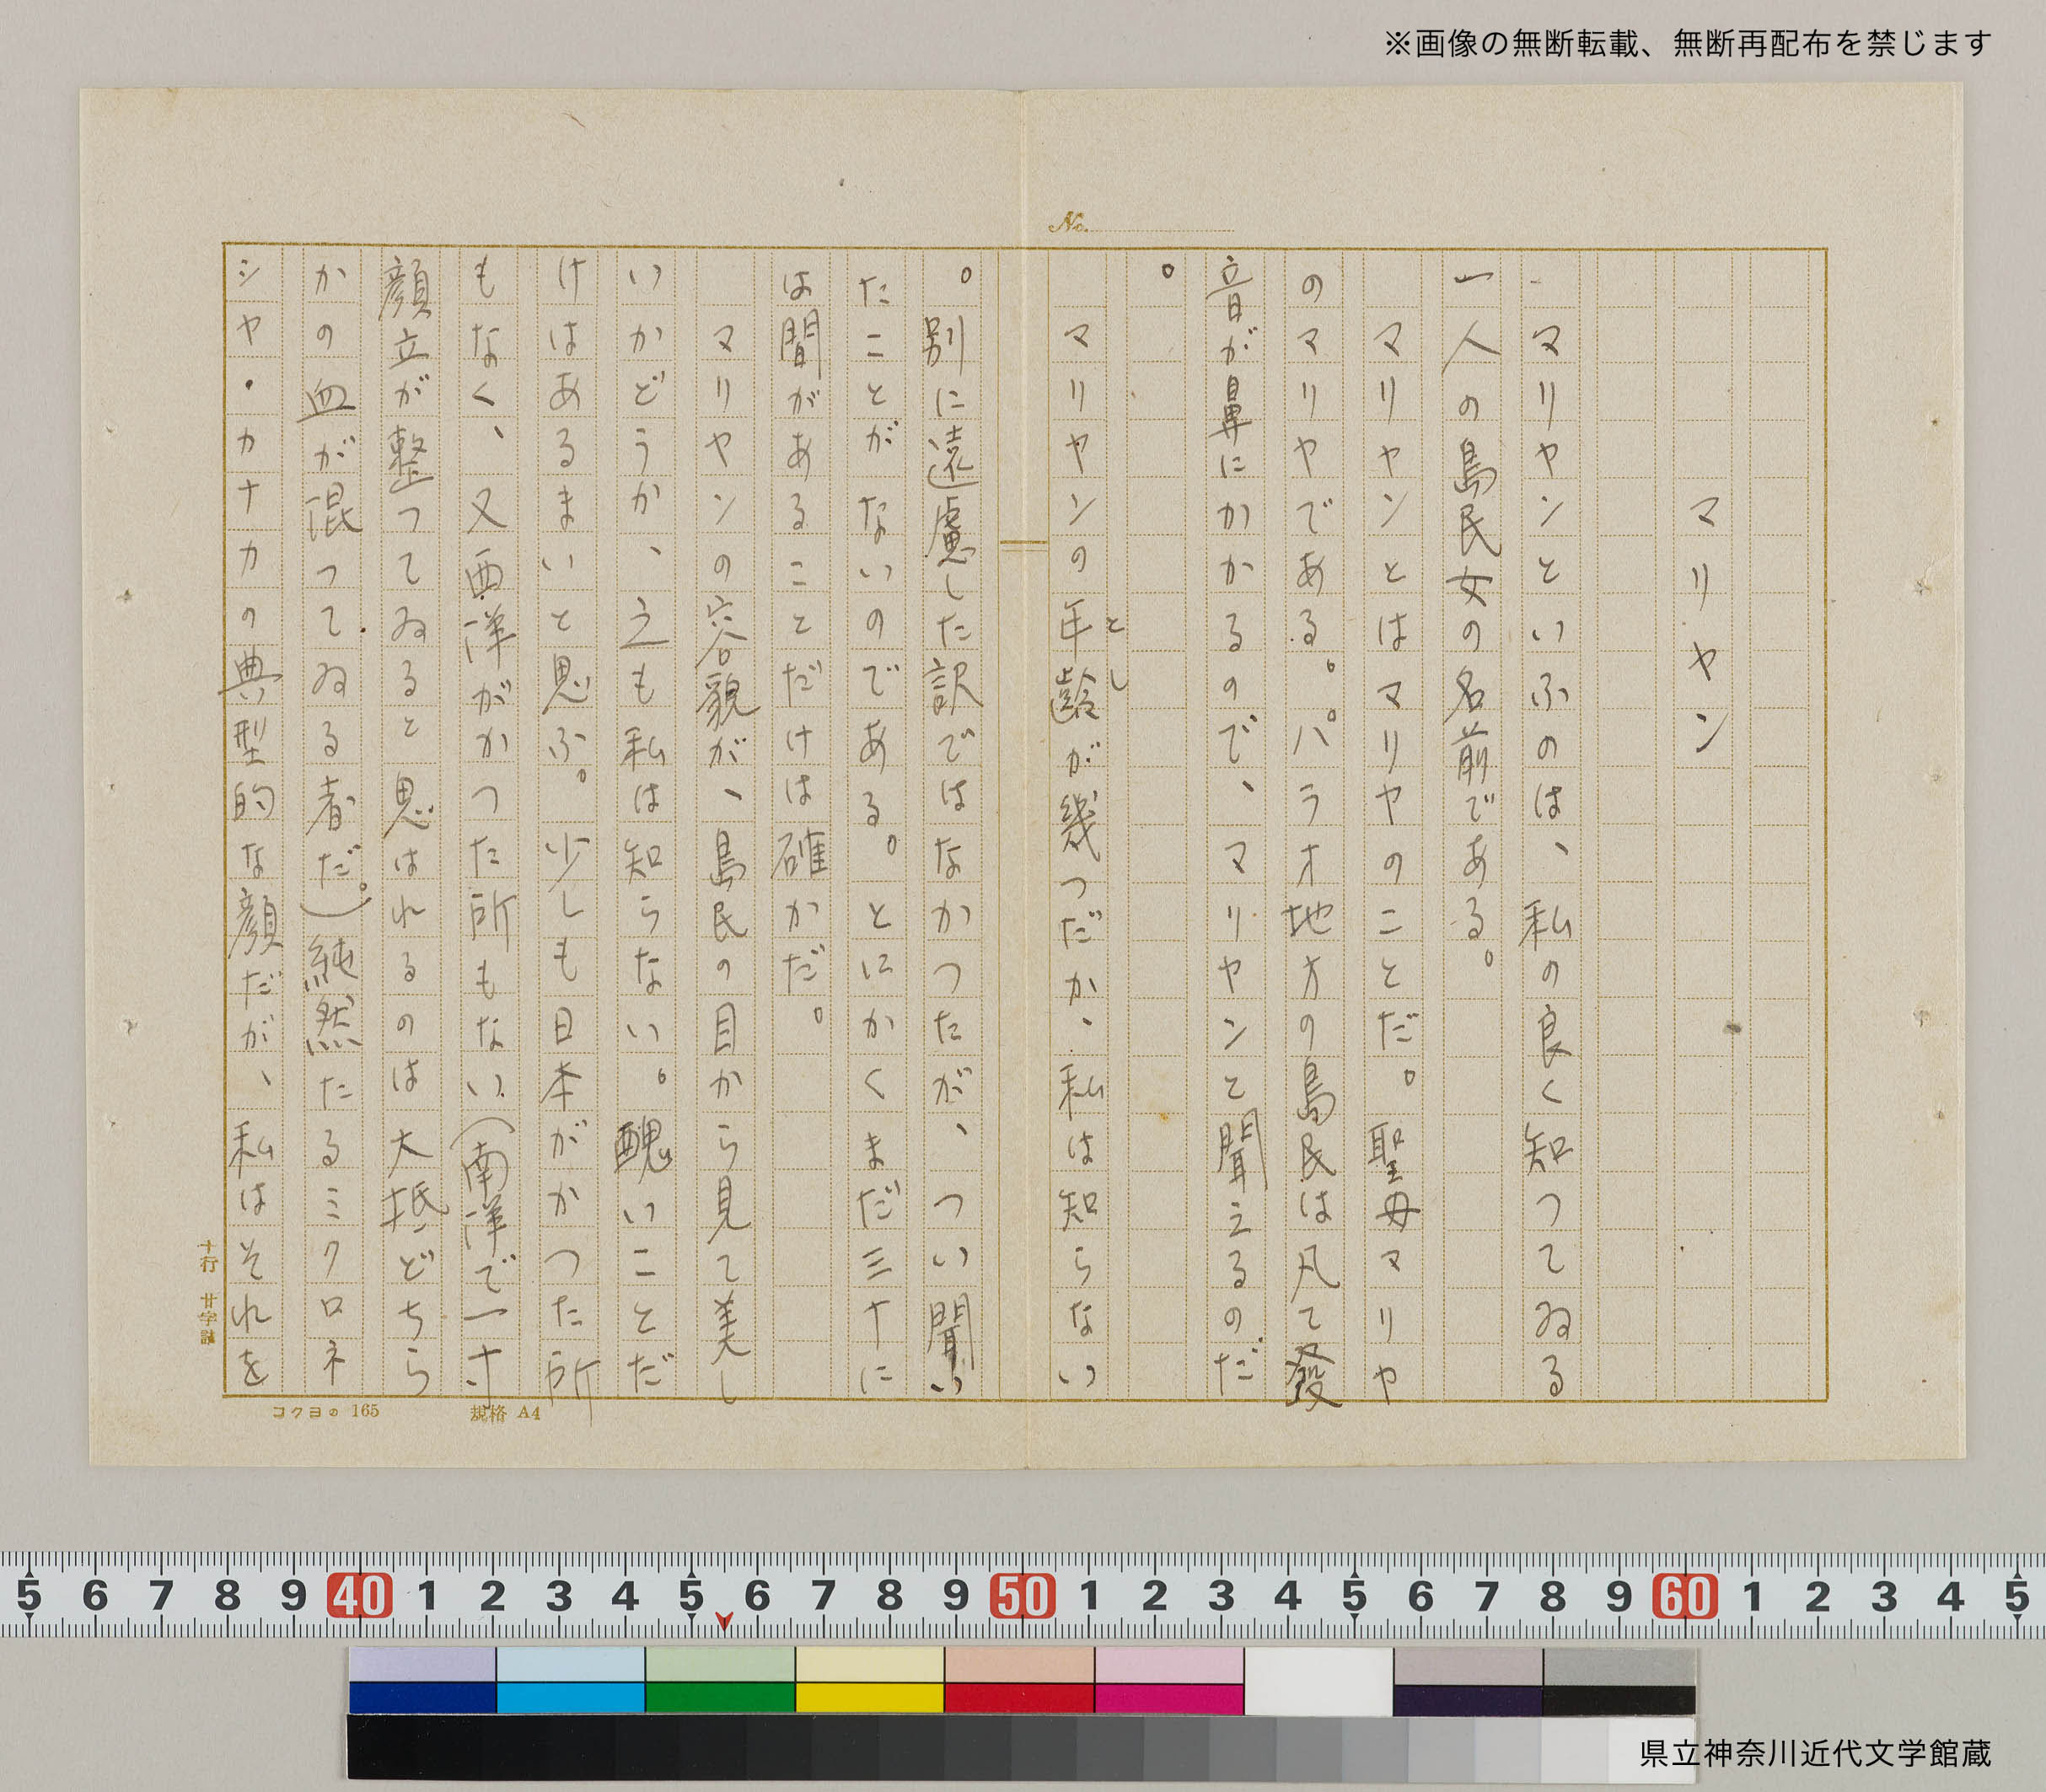 ※画像の無断転載、無断再配布を禁じます
No.
マリヤン
マリヤンといふのは、私の良く知つてゐる
一人の島民女の名前である。
マリヤンとはマリヤのことだ。聖母マリヤ
のマリヤである。パラオ地方の島民は凡て發
音が鼻にかかるので、マリヤンと聞えるのだ
。
マリヤンの年齢が幾つだか、私は知らない
とし
。別に遠慮した訳ではなかつたが、つい聞い
たことがないのである。とにかくまだ三十に
は間があることだけは確かだ。
マリヤンの容貌が、島民の目から見て美し
いかどうか、之も私は知らない。醜いことだ
けはあるまいと思ふ。少しも日本がかつた所
もなく、又西洋がかつた所もない(南洋で一寸
顔立が整つてゐると思はれるのは大抵どちら
かの血が混つてゐる者だ。)純然たるミクロネ
シヤ・カナカの典型的な顔だが、私はそれを
十行 廿字詰
コクヨの 165 規格 A4
5 6 7 8 9 40 1 2 3 4 5 6 7 8 9 50 1 2 3 4 5 6 7 8 9 60 1 2 3 4 5
県立神奈川近代文学館蔵